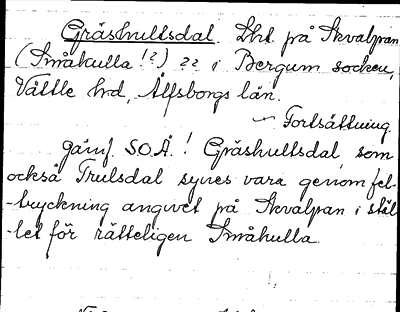 Gräshultsdal. Lht. på Skvalpan
(Småkulla !?) ?? i Bergum socken,
Vättle hd, Älfsborgs län.
Fortsättning.
Jämf. S.O.Ä.! Gräshultsdal, som
också Trulsdal synes vara genom fel-
-tryckning angivet på Skvalpan i stäl-
-let för rätteligen Småkulla.